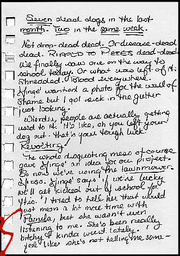 Seven dead dogs in the last
month. Two in the same week.
Not drop-dead dead. Or disease-dead
dead. Ripped to Pieces dead-dead.
We finally saw one on the way to
school today. Or what was left of it.
Shredded. Blood everywhere.
wanted a photo for the wall of
Shame but I got sick in the gutter
just looking.
Weirdly, people are actually getting
used to it. It's like, oh you left your
dog out - that's your tough luck.
Revolting!
The whole disgusting mess of course
gave an idea for our project.
So now we're using the lawnmower.
says if we're lucky
we'll get kicked out of school for
this. I tried to tell her that would
just mean a lot more time with
Pamela, but she wasn't even
listening to me. She's been really
bitchy & kinda weird lately. I
feel like she's not telling me some-